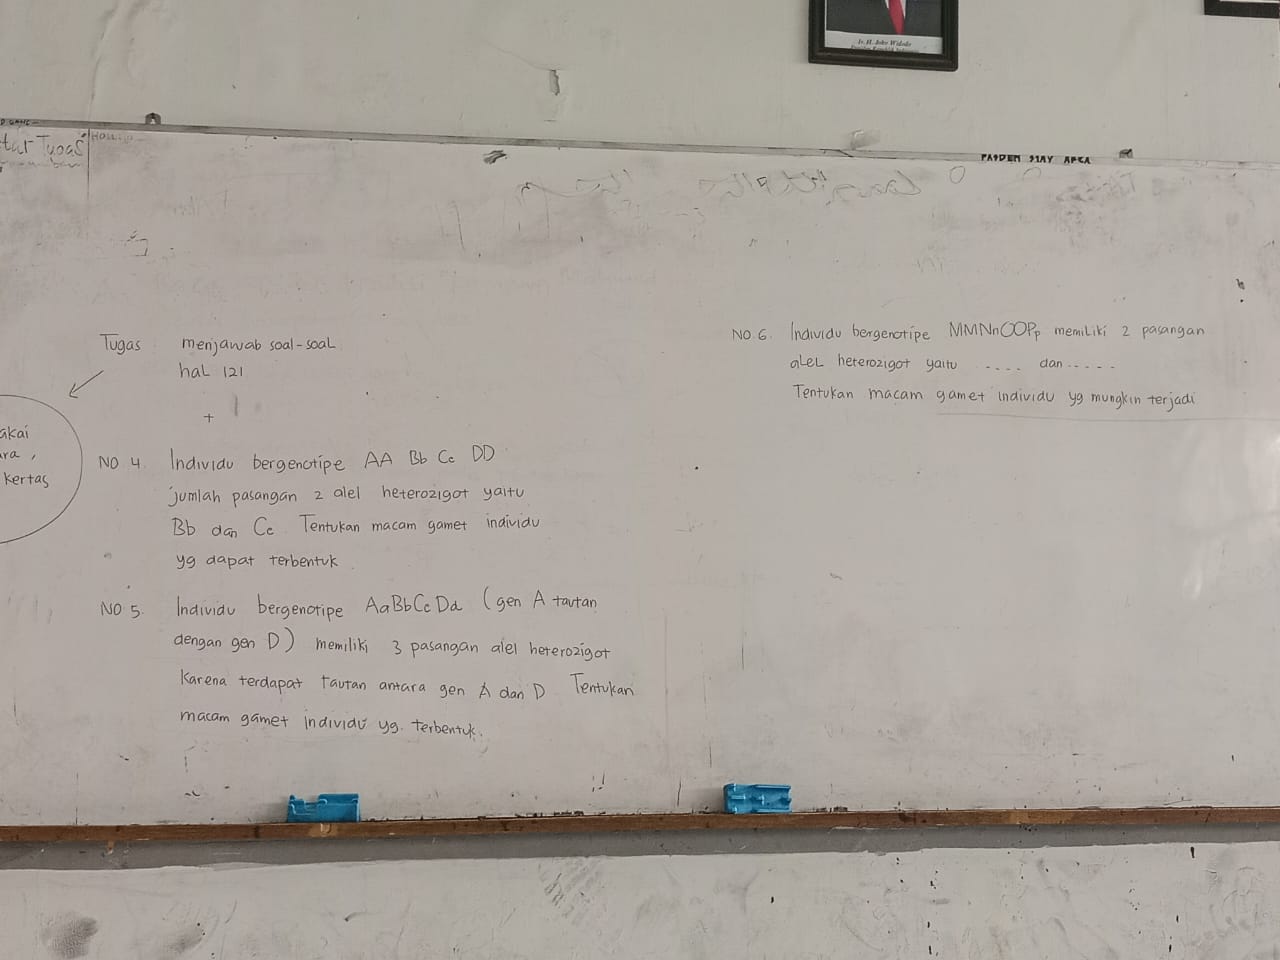 Ir. H. Joko Widodo
Tugas
Tugas menjawab soal-soal
hal 121
+
akai
ra,
kertas
NO 4. Individu bergenotipe AA Bb Cc DD
jumlah pasangan 2 alel heterozigot yaitu
Bb dan Cc. Tentukan macam gamet individu
yg dapat terbentuk
NO 5. Individu bergenotipe AaBbCcDd (gen A tautan
dengan gen D) memiliki 3 pasangan alel heterozigot
Karena terdapat tautan antara gen A dan D Tentukan
macam gamet individu yg. terbentuk.
NO 6. Individu bergenotipe MMNnOOPp memiliki 2 pasangan
alel heterozigot yaitu .... dan .....
Tentukan macam gamet individu yg mungkin terjadi